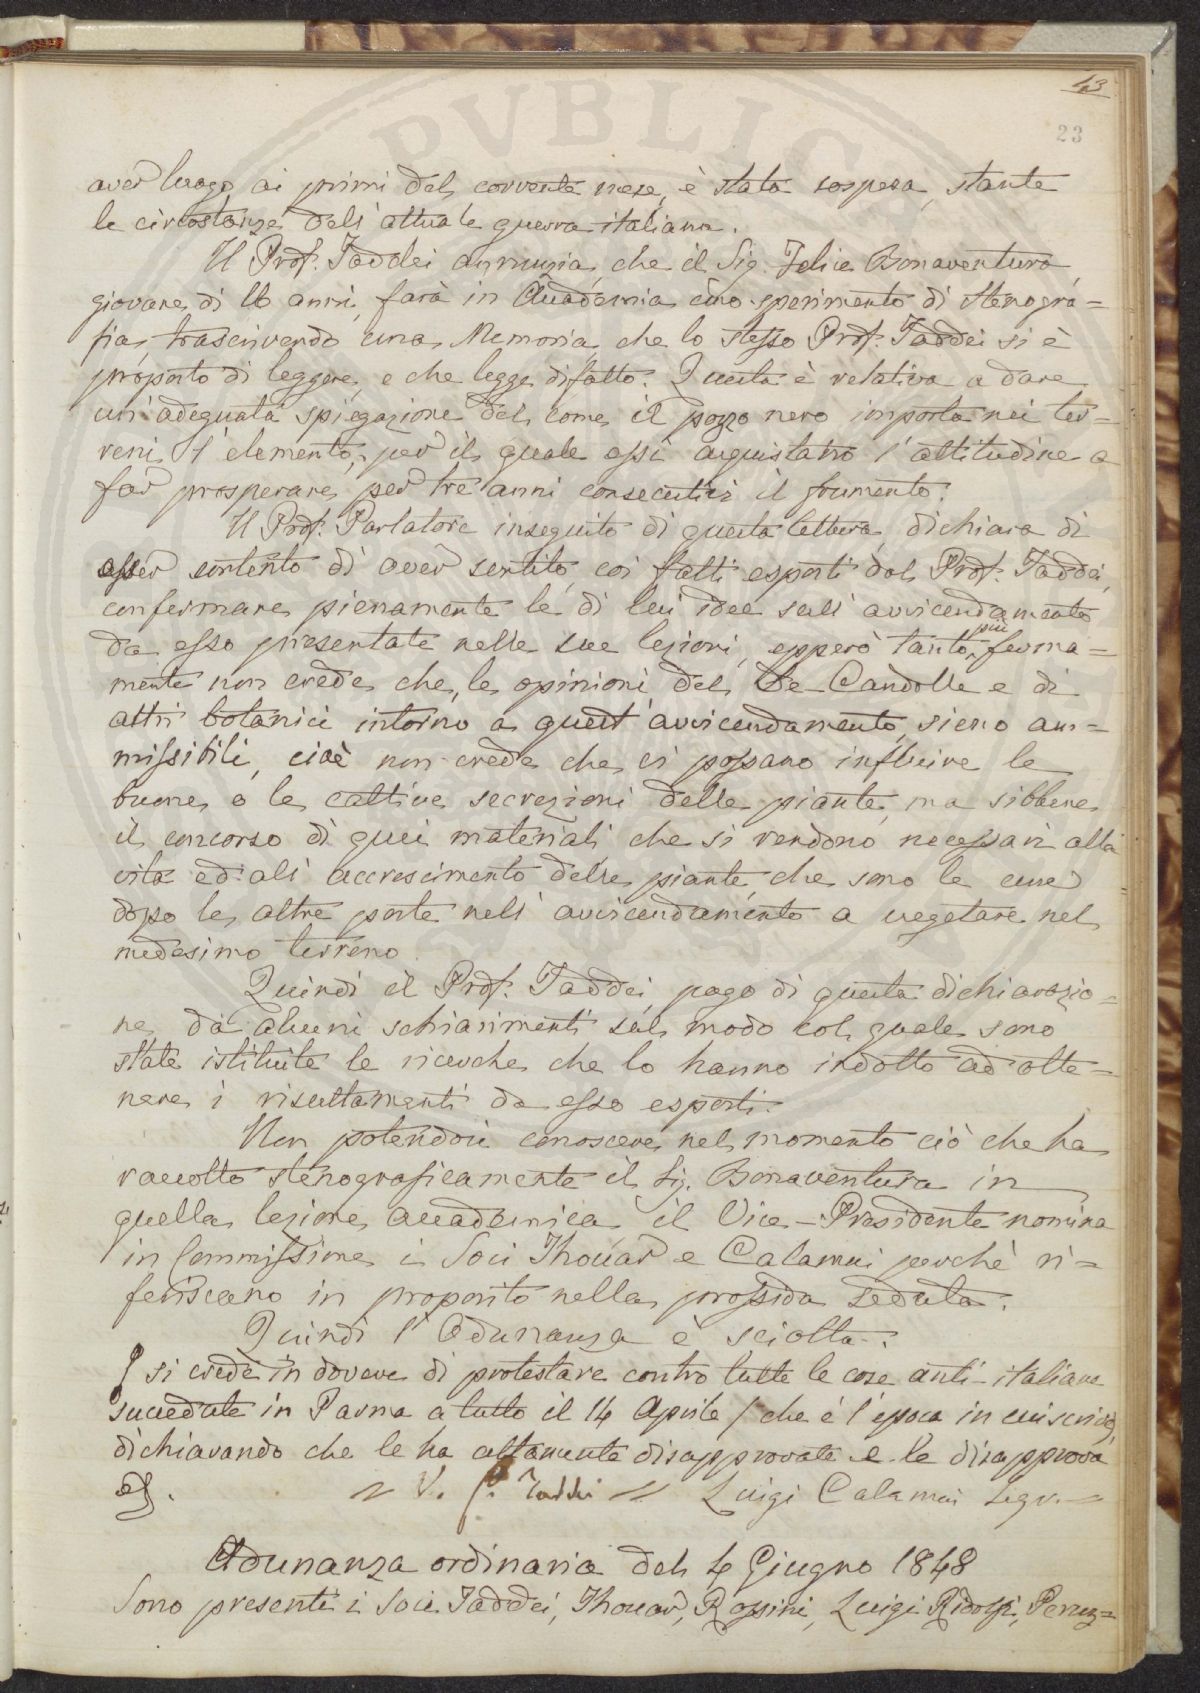 43
23
aver luogo ai primi del corrente mese, è stata sospesa, stante
le circostanze dell'attuale guerra italiana.
Il Prof. Taddei annunzia, che il Sig. Felice Bonaventura
giovane di 16 anni, farà in Accademia uno sperimento di stenogra=
fia, trascrivendo una Memoria, che lo stesso Prof. Taddei si è
proposto di leggere, e che legge difatto. Questa è relativa a dare
un'adeguata spiegazione del come il pozzo nero importa nei ter=
reni l'elemento, per il quale essi acquistano l'attitudine a
far prosperare per tre anni consecutivi il frumento.
Il Prof. Parlatore inseguito di questa lettura, dichiara di
esser contento di aver sentito coi fatti esposti dal Prof. Taddei,
confermare pienamente le di lui idee sull'avvicendamento
da esso presentate nelle sue lezioni, epperò tanto più ferma=
mente non crede che le opinioni del De-Candolle e di
altri botanici intorno a quest'avvicendamento, sieno am=
missibili, cioè non crede che ci possano influire le
buone, o le cattive secrezioni delle piante, ma sibbene
il concorso di quei materiali che si rendono necessari alla
vita ed all'accrescimento delle piante, che sono le une
dopo le altre poste nell'avvicendamento a vegetare nel
medesimo terreno.
Quindi il Prof. Taddei, pago di questa dichiarazio=
ne, dà alcuni schiarimenti sul modo col quale sono
state istituite le ricerche che lo hanno indotto ad otte=
nere i risultamenti da esso esposti.
Non potendosi conoscere nel momento ciò che ha
raccolto stenograficamente il Sig. Bonaventura in
quella lezione accademica il Vice-Presidente nomina
in Commissione i Soci Thouar e Calamai perchè ri=
feriscano in proposito nella prossima seduta.
Quindi l'Adunanza è sciolta.
si crede in dovere di protestare contro tutte le cose anti-italiane
succedute in Parma a tutto il 14 Aprile (che è l'epoca in cui scrive)
dichiarando che le ha altamente disapprovate e le disapprova
V. P. Taddei Luigi Calamai Segr.
Adunanza ordinaria del 4 Giugno 1848
Sono presenti i Soci Taddei, Thouar, Rossini, Luigi Ridolfi, Peruz=